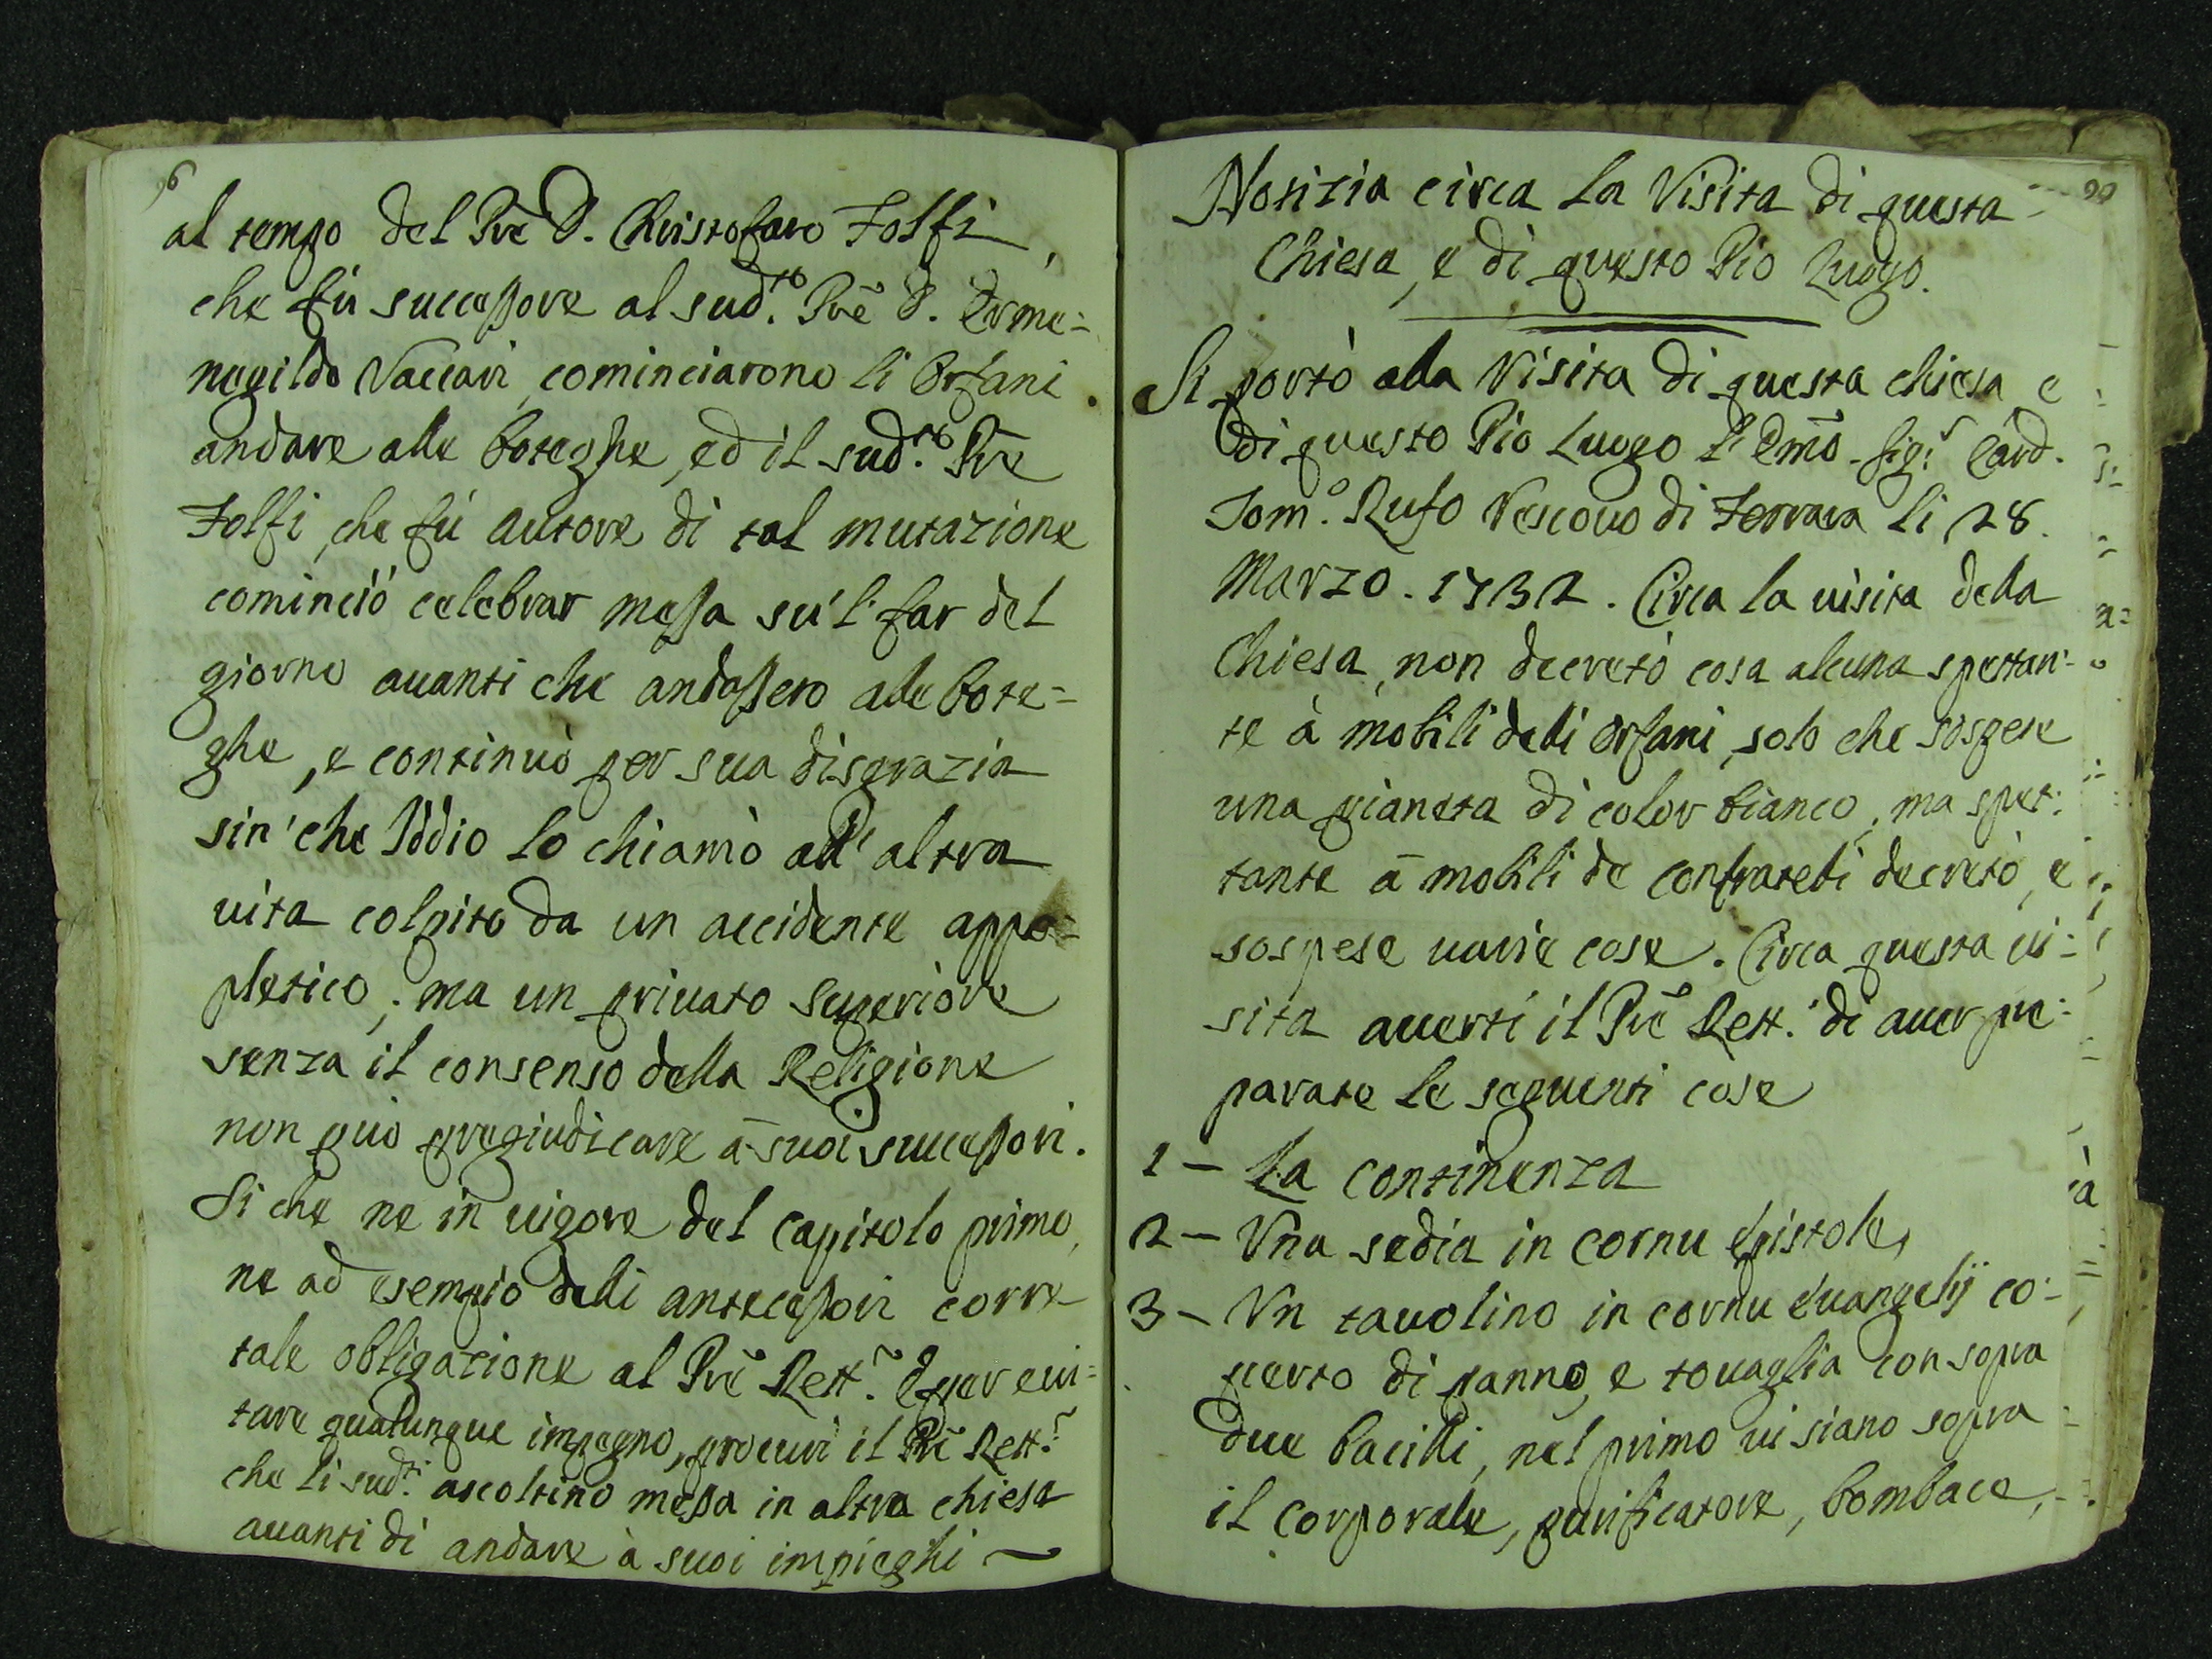 al tempo del Prē D. Christofaro Folfi,
che fù successore al sud.to Prē D. Erme=
negildo Vaccari, cominciarono li Orfani
andare alle boteghe, ed il sud.to Prē
Folfi, che fù autore di tal mutazione
cominciò celebrar messa sù l' far del
giorno auanti che andassero alle bote=
ghe, e continuò per sua disgrazia
sin' che Iddio lo chiamò all' altra
uita colpito da un accidente appo=
pletico; ma un priuato superiore
senza il consenso della Religione
non può pregiudicare à suoi successori.
Si che ne in uigore del capitolo primo,
ne ad esempio delli antecessori corre
tale obligazione al Prē Rett.r E per eui=
tare qualunque impegno, procuri il Prē Rett.r
che li sud.ti ascoltino messa in altra chiesa
auanti di andare à suoi impieghi
Notizia circa la Visita di questa
Chiesa, e di questo Pio Luogo.
Si portò alla Visita di questa chiesa e
di questo Pio Luogo l' Emō Sig.r Card.
Tom.o Rufo Vescouo di Ferrara li 28.
Marzo. 1732. Circa la uisita della
Chiesa, non decretò cosa alcuna spettan=
te à mobili delli Orfani, solo che sospese
una pianeta di color bianco, ma spet=
tante à mobili de confratelli decretò, e
sospese uarie cose. Circa questa ui=
sita auerti il Prē Rett. di auer pre=
parate le seguenti cose
1 - La continenza
2 - Vna sedia in cornu Epistole,
3 - Vn tauolino in cornu Euangelij co=
perto di panno, e touaglia con sopra
due bacilli, nel primo ui siano sopra
il corporale, purificatore, bombace,